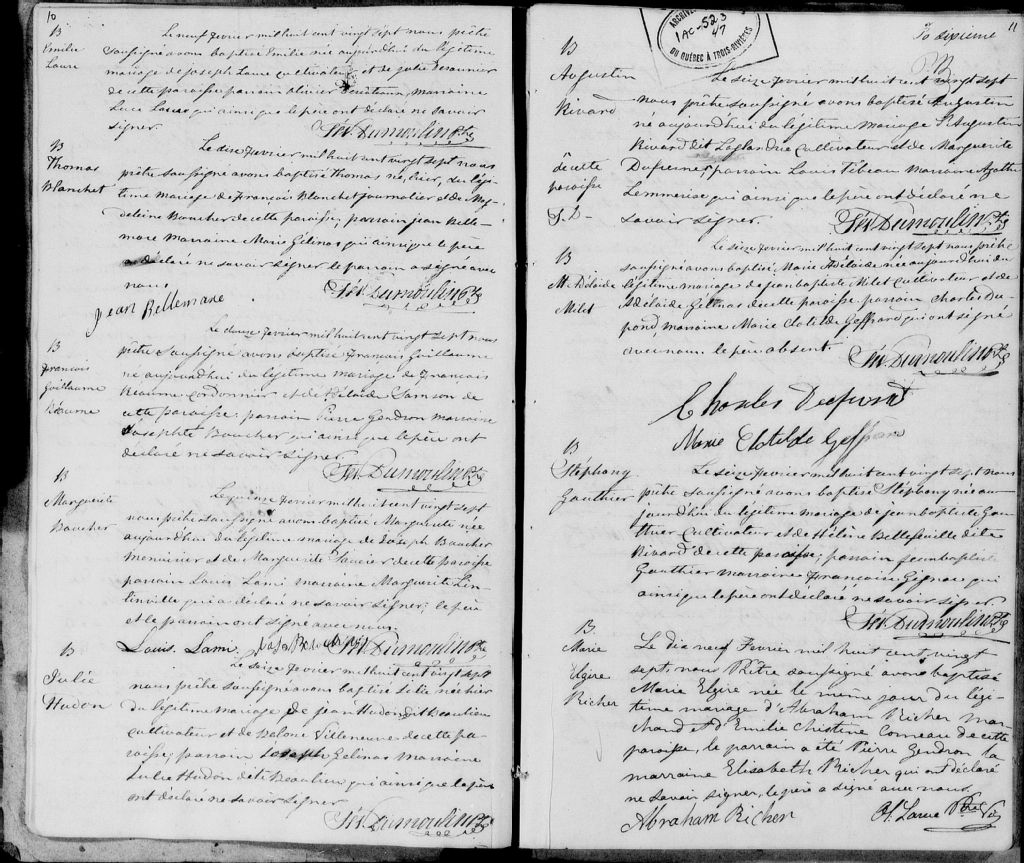 10
B
Emilie
Laure
Le neuf fevrier mil huit cent vingt sept nous prêtre
soussigné avons baptisé Emilie née aujourdhui du légitime
mariage de joseph Laure cultivateur et de julie
de cette paroisse parrain olivier marraine
Luce qui ainsi que le père ont déclaré ne savoir
signer.
Sév. Dumoulin Ptre
B
Thomas
Blanchet
Le dix fevrier mil huit cent vingt sept nous
prêtre soussigné avons baptisé Thomas né hier, du légi-
time mariage de François Blanchet journalier et de Mag-
deleine Boucher de cette paroisse, parrain jean Belle-
mare marraine Marie Gelinas qui ainsi que le père
a déclaré ne savoir signer le parrain a signé avec
nous.
Sév. Dumoulin Ptre
Jean Bellemare
B
François
Guillaume
Réaume
Le douze fevrier mil huit cent vingt sept nous
prêtre soussigné avons baptisé François Guillaume
né aujourdhui du légitime mariage de François
Reaume cordonnier et de Adelaide Samson de
cette paroisse; parrain Pierre Gendron marraine
Josephte Boucher qui ainsi que le père ont
déclaré ne savoir signer
Sév. Dumoulin Ptre
B
Marguerite
Boucher
Le quinze fevrier mil huit cent vingt sept
nous prêtre soussigné avons baptisé Marguerite née
aujourdhui du légitime mariage de Joseph Boucher
menuisier et de Marguerite de cette paroisse
parrain Louis Lami marraine Marguerite
qui a déclaré ne savoir signer; le père
et le parrain ont signé avec nous.
Louis Lami Sév. Dumoulin Ptre
B
Julie
Hudon
Le seize fevrier mil huit cent vingt sept
nous prêtre soussigné avons baptisé Julie née hier
du légitime mariage de jean Hudon dit Beaulieu
cultivateur et de Villeneuve de cette pa-
roisse; parrain Joseph Gelinas Marraine
Julie Hudon dite Beaulieu qui ainsi que le père
ont déclaré ne savoir signer
Sév. Dumoulin Ptre
11
fo sixieme
ARCHIVES
1AC-523
47
DU QUÉBEC À TROIS-RIVIÈRES
B
Augustin
Rivard
de cette
paroisse
S. D-
Le seize fevrier mil huit cent vingt sept
nous prêtre soussigné avons baptisé Augustin
né aujourdhui du légitime mariage d'Augustin
Rivard dit Laglanderie cultivateur et de Marguerite
Dufresne; parrain Louis Tebeau Marraine Agathe
Lemmerise qui ainsi que le père ont déclaré ne
savoir signer.
Sév. Dumoulin Ptre
B
M. Adelaide
Milet
Le seize fevrier mil huit cent vingt sept nous prêtre
soussigné avons baptisé Marie Adélaide née aujourdhui du
légitime mariage de jean baptiste Milet cultivateur et de
Adelaide Gelinas de cette paroisse parrain Charles Du-
pond, marraine Marie Clotilde Geffrard qui ont signé
avec nous le père absent.
Sév. Dumoulin Ptre
Charles Dupont
Marie Clotilde Geffrard
B
Stéphany
Gauthier
Le seize fevrier mil huit cent vingt sept nous
prêtre soussigné avons baptisé Stéphany née au-
jourdhui du légitime mariage de jean baptiste Gau-
thier cultivateur et de Hélène Bellefeuille dite
Rivard de cette paroisse; parrain jean baptiste
Gauthier marraine Françoise qui
ainsi que le père ont déclaré ne savoir signer.
Sév. Dumoulin Ptre
B.
Marie
Elzire
Richer
Le dix neuf Fevrier mil huit cent, vingt
sept, nous Prêtre soussigné avons baptisé
Marie Elzire née le même jour du légi-
time mariage d'Abraham Richer mar-
chand et d'Emilie Christine Comeau de cette
paroisse, le parrain a été Pierre Gendron la
marraine Elisabeth Richer qui ont déclaré
ne savoir signer, le père a signé avec nous.
Abraham Richer O. Larue Ptre